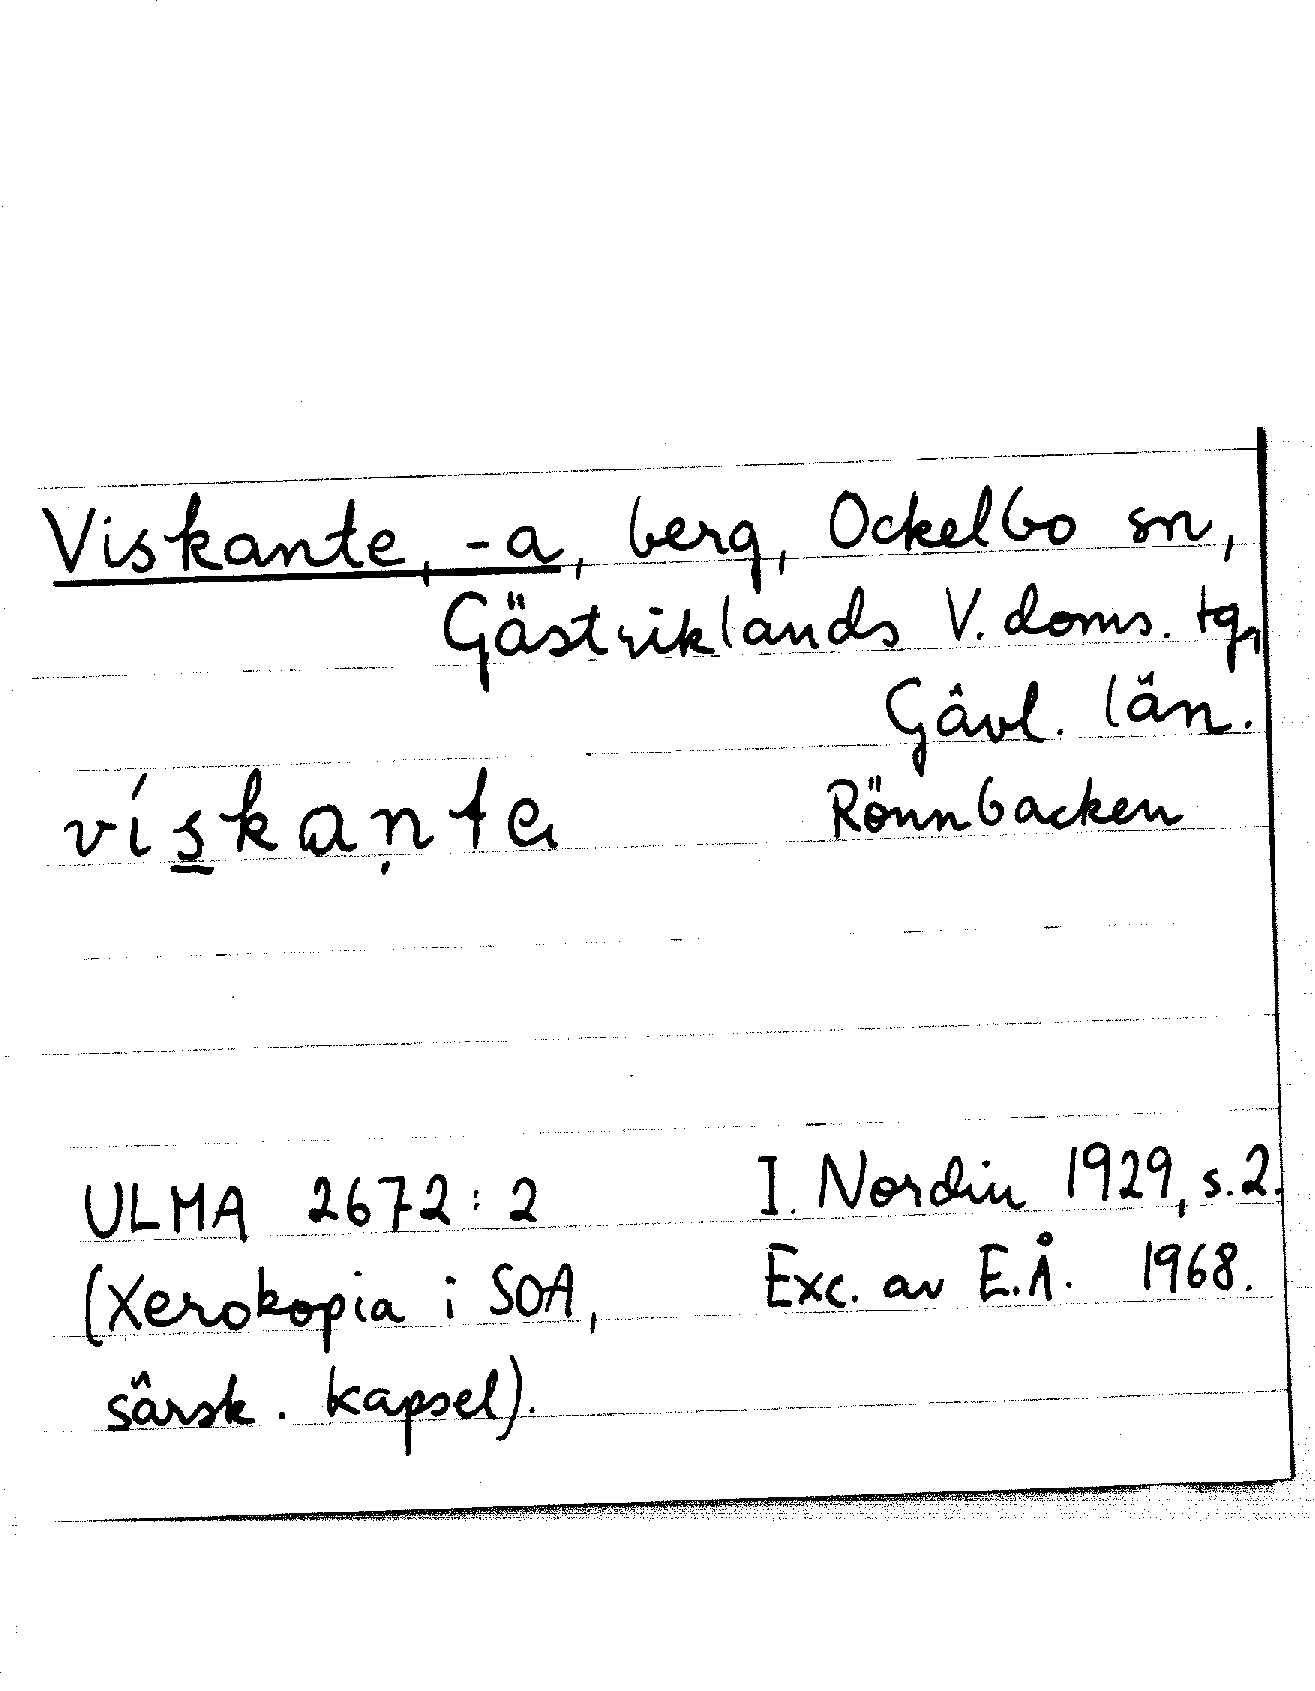 Viskante, -a, berg, Ockelbo sn,
Gästriklands V. doms. tg,
Gävl. län.
vískanta Rönnbacken
ULMA 2672:2 I. Nordin 1929, s.2.
(Xerokopia i SOA, Exc. av E.Å. 1968.
särsk. kapsel).